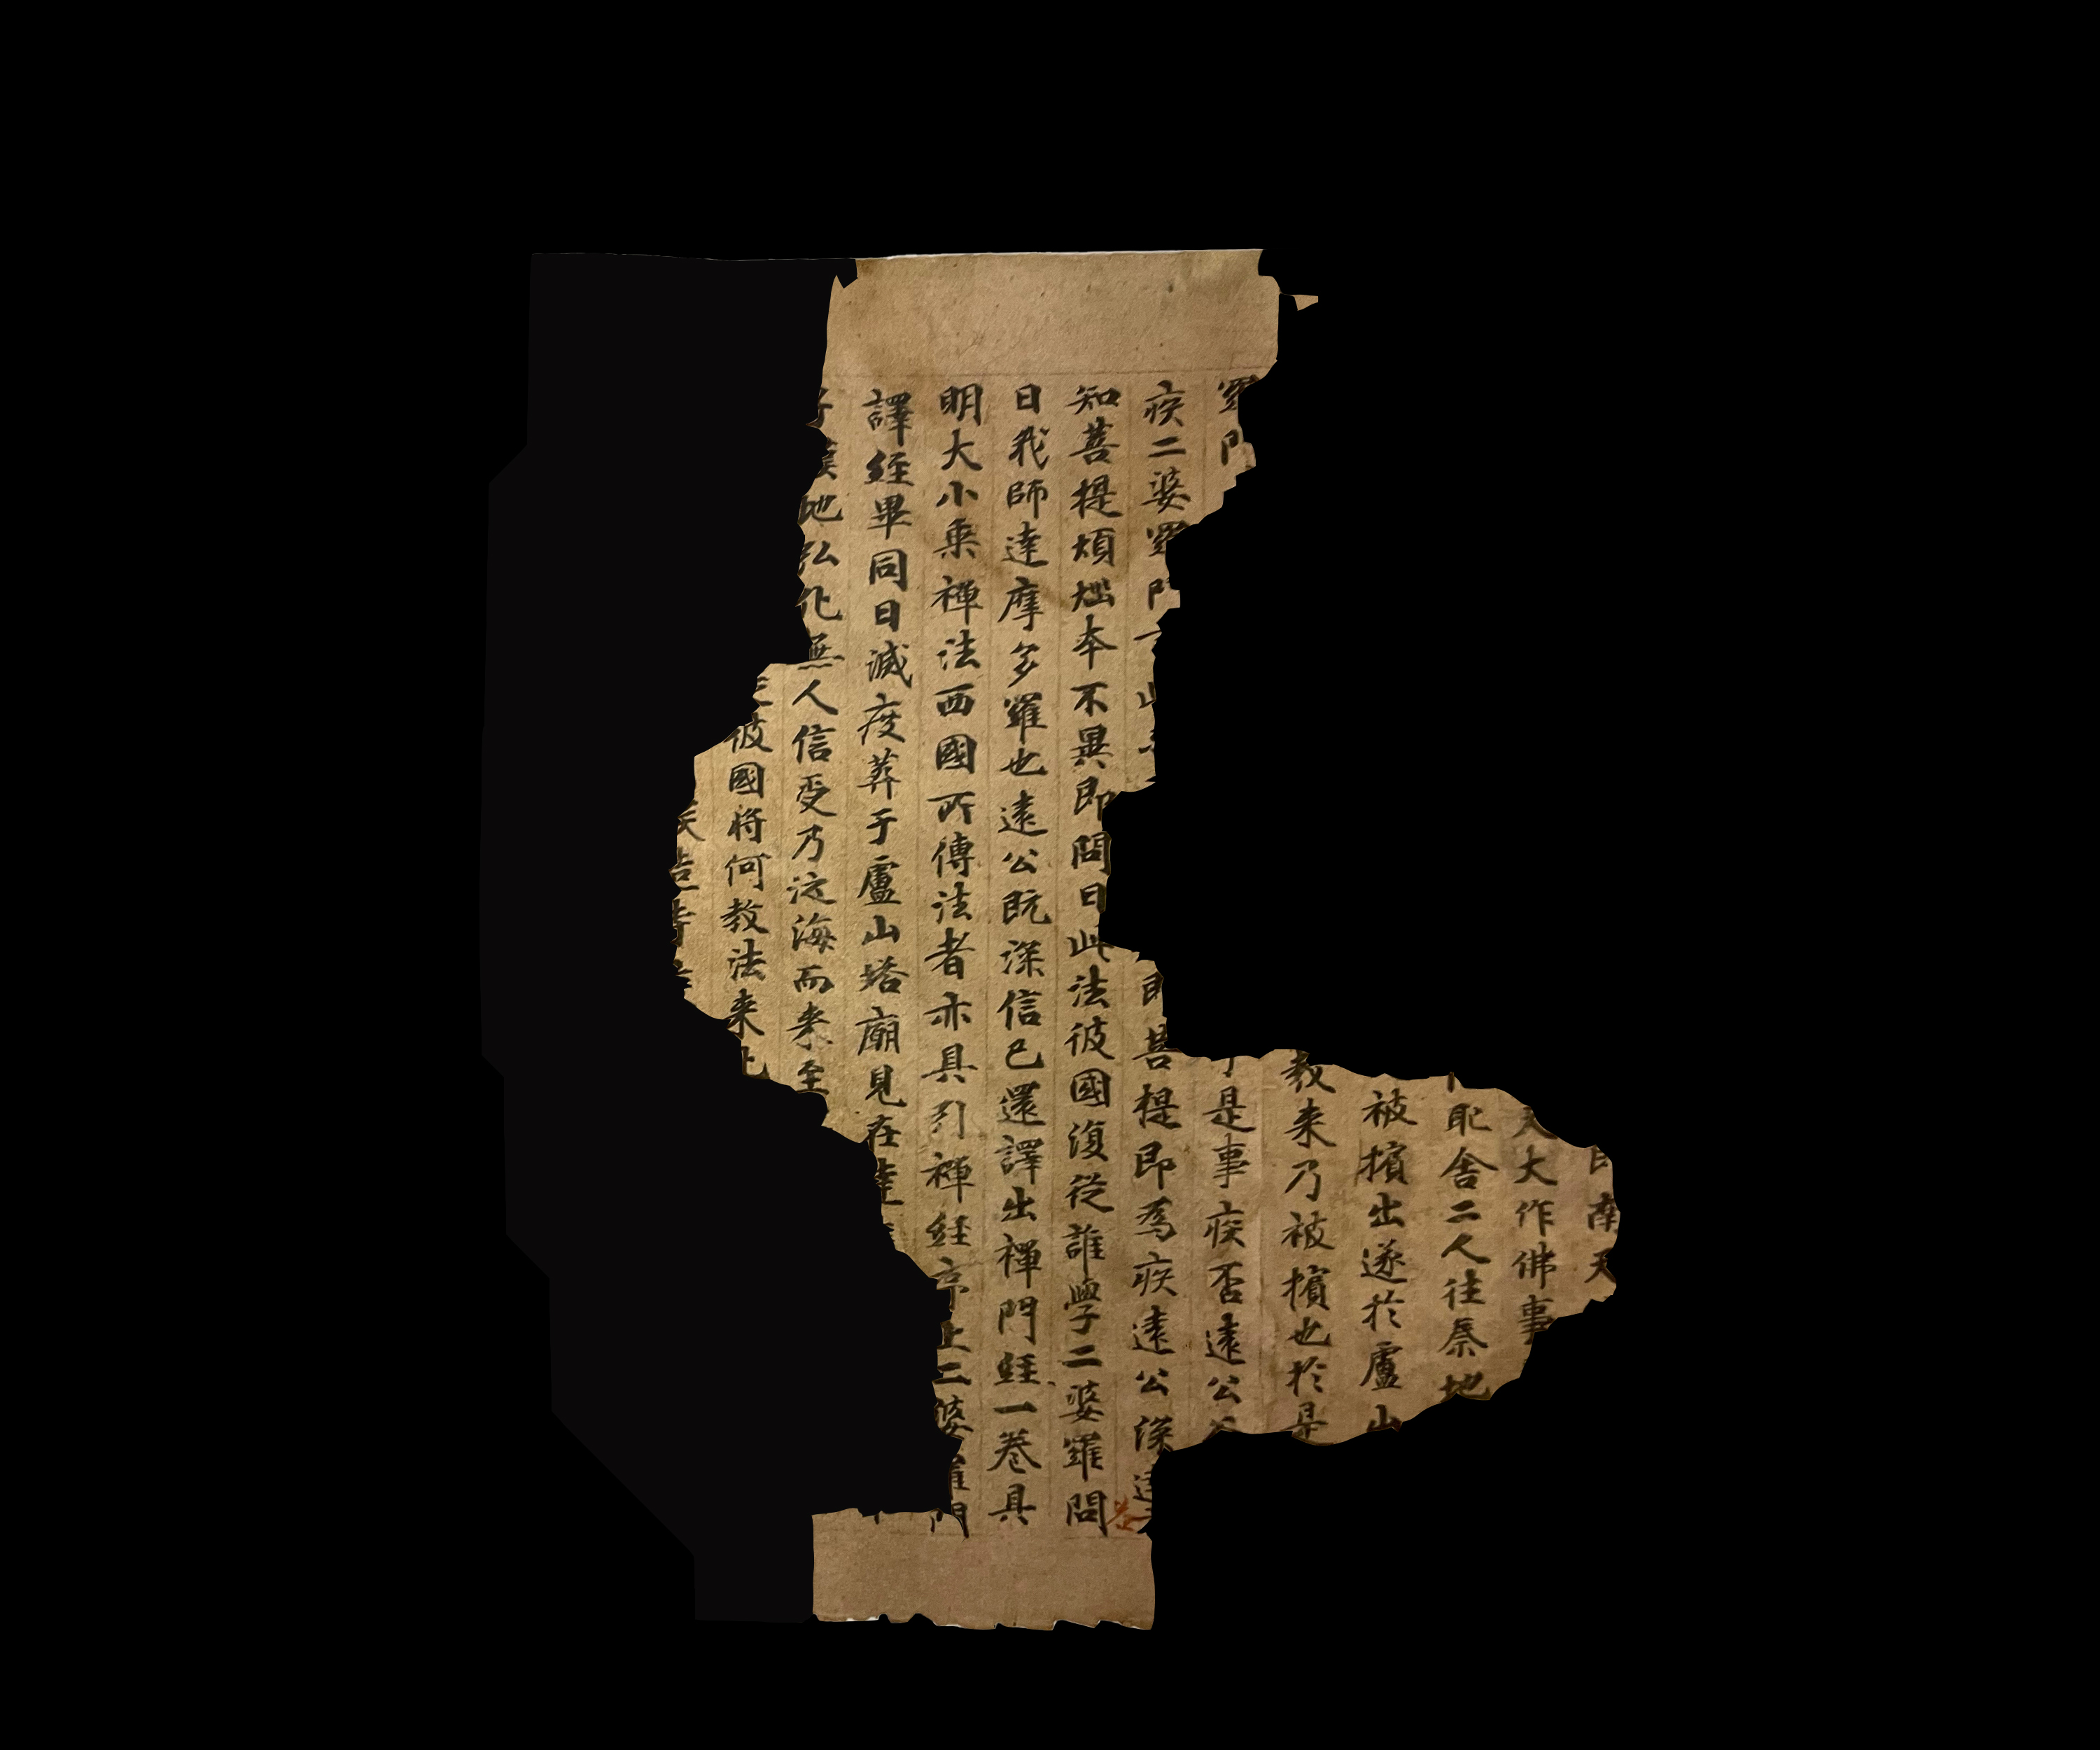 南天
大作佛事
恥舍二人往蔡地
被擯出遂於盧山
教来乃被擯也於是
羅門是事疾否遠公
疾二婆羅門一即菩提即為疾遠公深達
知菩提煩惱本不異即問曰此法彼國復從誰學二婆羅問
日我師達摩多羅也遠公既深信已還譯出禪門經一卷具
明大小乘禪法西國所傳法者亦具引禪經序上二婆羅門
譯經畢同日滅度葬于盧山塔廟見在達
漢地弘化無人信受乃泛海而来至
彼國將何教法来